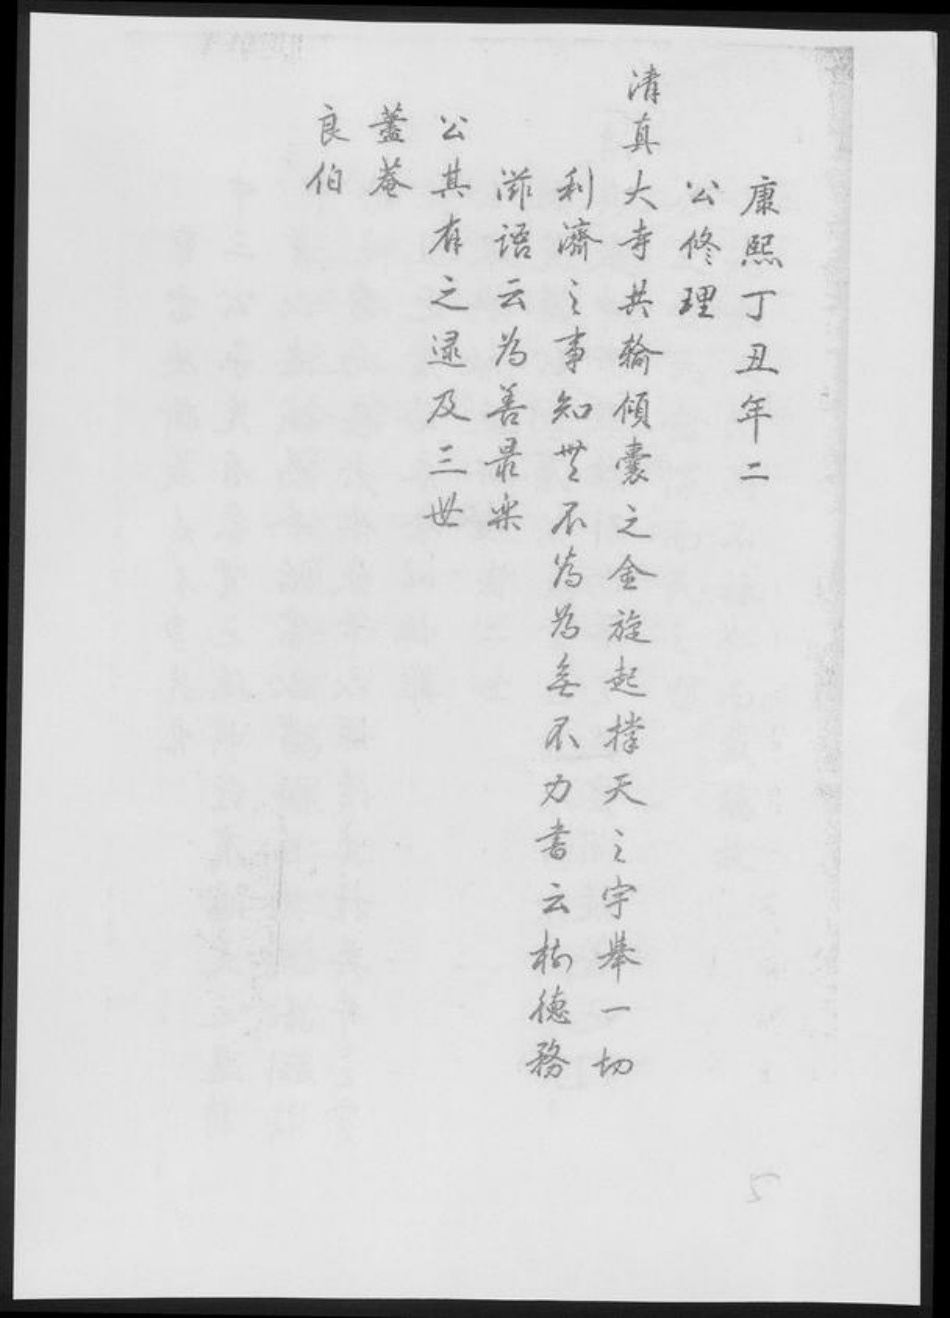 康熙丁丑年二
公修理
清真大寺共輸傾囊之金旋起撑天之宇舉一切
利濟之事知無不為為無不力書云樹德務
滋語云為善最樂
公其有之逮及三世
藎菴
良伯